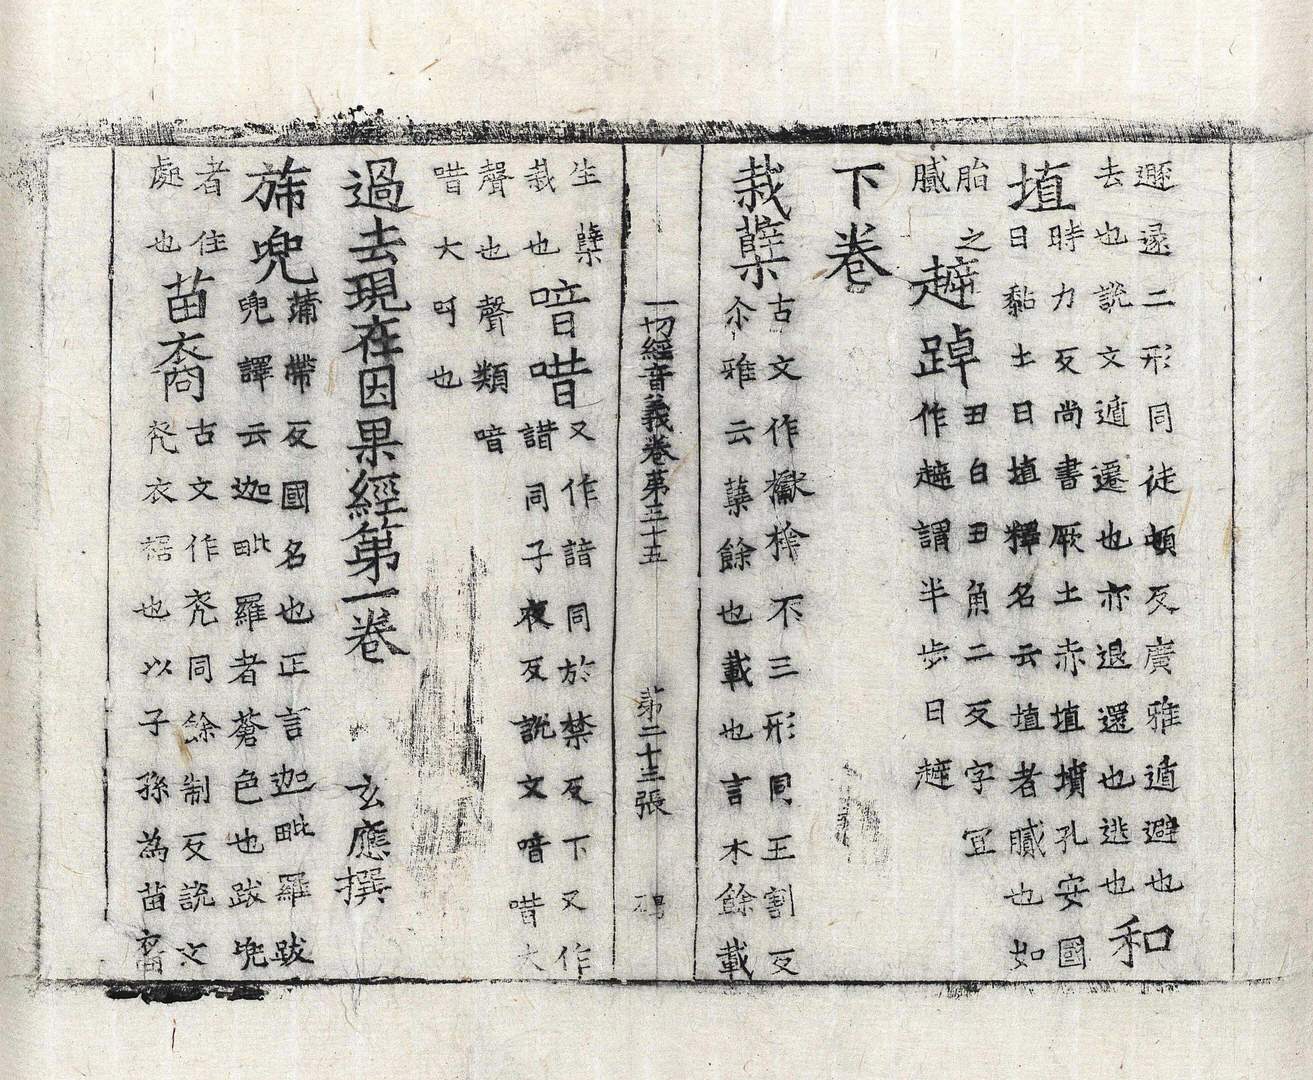 遯遂二形同徒頓反廣雅遁避也
去也説文遁遷也亦退還也逃也和
埴時力反尚書厥土赤埴墳孔安國
曰黏土曰埴釋名云埴者膩也如
胎之
膩
趠踔丑白丑角二反字冝
作趠謂半步曰趠
下卷
栽蘖古文作
不三形同王割反
尒雅云蘖餘也載也言木餘載
生蘖
栽也
喑唶又作諳同於禁反下又作
譜同子夜反説文喑唶大
聲也聲類喑
唶大呵也
一切經音義卷第三十五 第二十三張
過去現在因果經第一卷 玄應撰
兠蒲帶反國名也正言迦毗羅跋
兠譯云迦毗羅者蒼色也跋兠
者住
處也
苗裔古文作同餘制反説文
衣裾也以子孫為苗裔